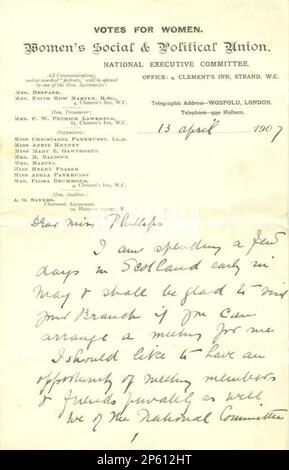 VOTES FOR WOMEN.
Women's Social & Political Union.
NATIONAL EXECUTIVE COMMITTEE.
All Communications,
unless marked "private," will be opened
by one of the Hon. Secretaries:
OFFICE: 4, CLEMENT'S INN, STRAND, W.C.
MRS. DESPARD,
MRS. EDITH HOW MARTYN, B.Sc.,
4, Clement's Inn, W.C.
Telegraphic Address—WOSPOLU, LONDON.
Hon. Treasurer:
Telephone—5550 Holborn.
MRS. F. W. PETHICK LAWRENCE,
87, Clement's Inn, W.C.
13 April 1907
Organisers:
MISS CHRISTABEL PANKHURST, LL.B.
MISS ANNIE KENNEY
MISS MARY E. GAWTHORPE
MRS. M. BALDOCK
MRS. MARTEL
MISS HELEN FRASER
MISS ADELA PANKHURST
MRS. FLORA DRUMMOND,
4, Clement's Inn, W.C.
Hon. Auditor:
A. G. SAYERS,
Chartered Accountant,
19, Hanover Square, W.
Dear Miss Phillips
I am spending a few
days in Scotland early in
May & shall be glad to visit
your Branch if you can
arrange a meeting for me
I should like to have an
opportunity of meeting members
& friends privately as well
We of the National Committee
alamy
Image ID: 2P612HT
www.alamy.com